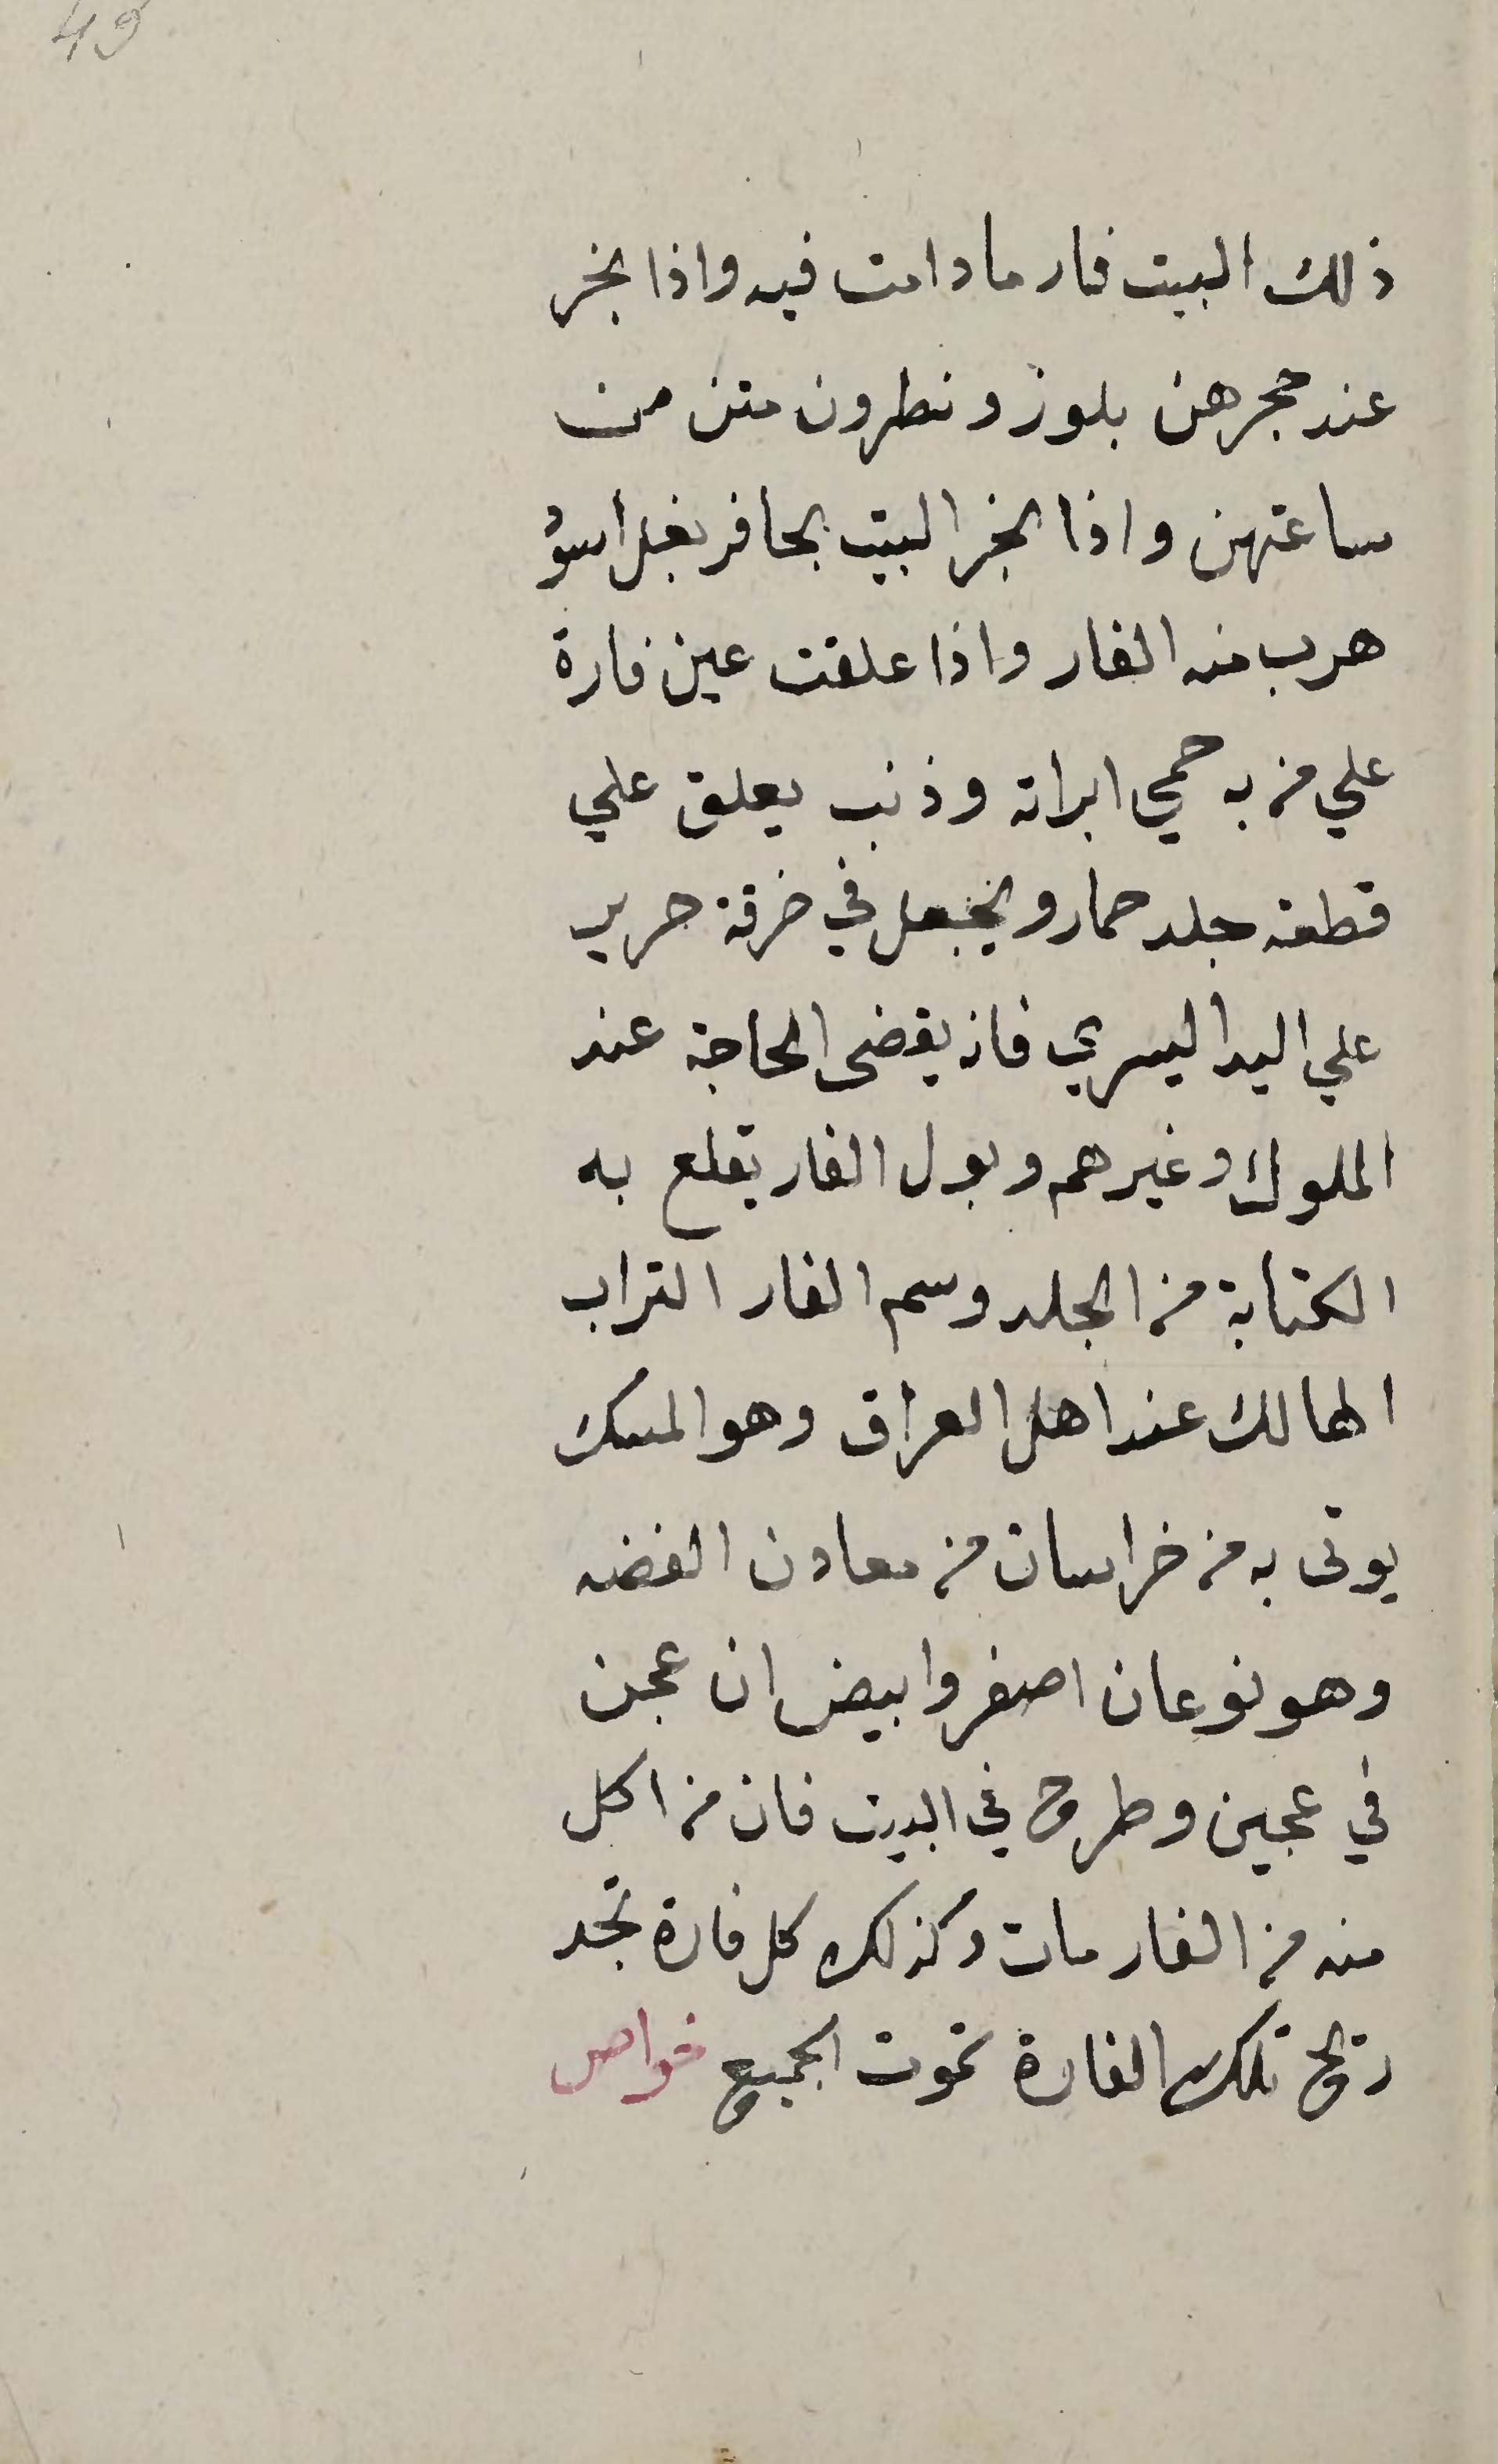 49
ذلك البيت فار ما دامت فيه واذا بخر
عند حجرهن بلوز ونطرون متن من
ساعتهن واذا بخر البيت بحافر بغل اسود
هرب منه الفار واذا علقت عين فارة
علي من به حمي ابراته وذنب يعلق علي
قطعة جلد حمار ويجعل في خرقة حرير
علي اليد اليسري فانه يقضى الحاجة عند
الملوك وغيرهم وبول الفار يقلع به
الكتابة من الجلد وسم الفار التراب
الهالك عند اهل العراق وهو المسك
يوتى به من خراسان من معادن الفضه
وهو نوعان اصفر وابيض ان عجن
في عجين وطرح في البيت فان من اكل
منه من الفار مات وكذلك كل فارة تجد
ريح تلك الفارة تموت الجميع خواص